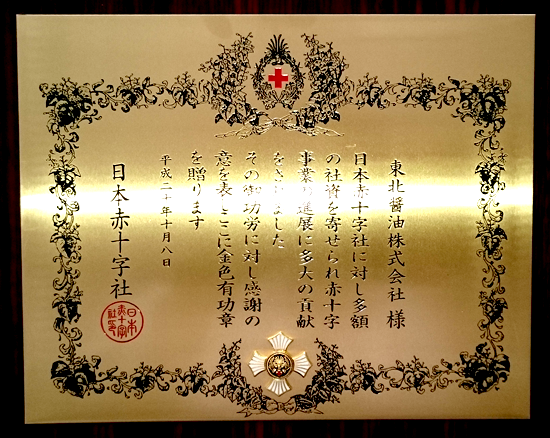 東北醤油株式会社 様
日本赤十字社に対し多額
の社資を寄せられ赤十字
事業の進展に多大の貢献
をされました
その御功労に対し感謝の
意を表しここに金色有功章
を贈ります
平成二十年十月八日
日本赤十字社
日本
赤十字
社印